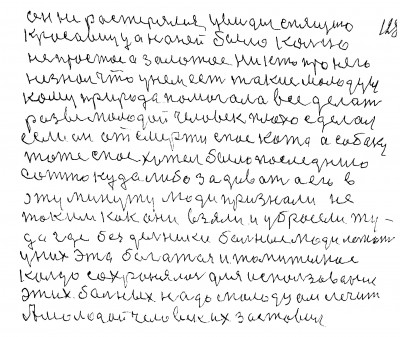 он не растерялся увидя спящую 128
Красавицу а на ней было Кольцо
непростое а золотое Никто про него
незнал что умеет такие молодцу
кому природа помогала все делат
разве молодой человек плохо сделал
если он от смерти спас кота а собаку
тоже спас хотел было последнию
сотню куда либо задеват а его в
эту минуту люди признали не
таким как они взяли и убросели ту-
да где безделники болные люди лежат
у них эта багатая и помтичное
Колдо сохронялос для исползование
этих болных надо молодцам лечит
А молодой человек их заставил